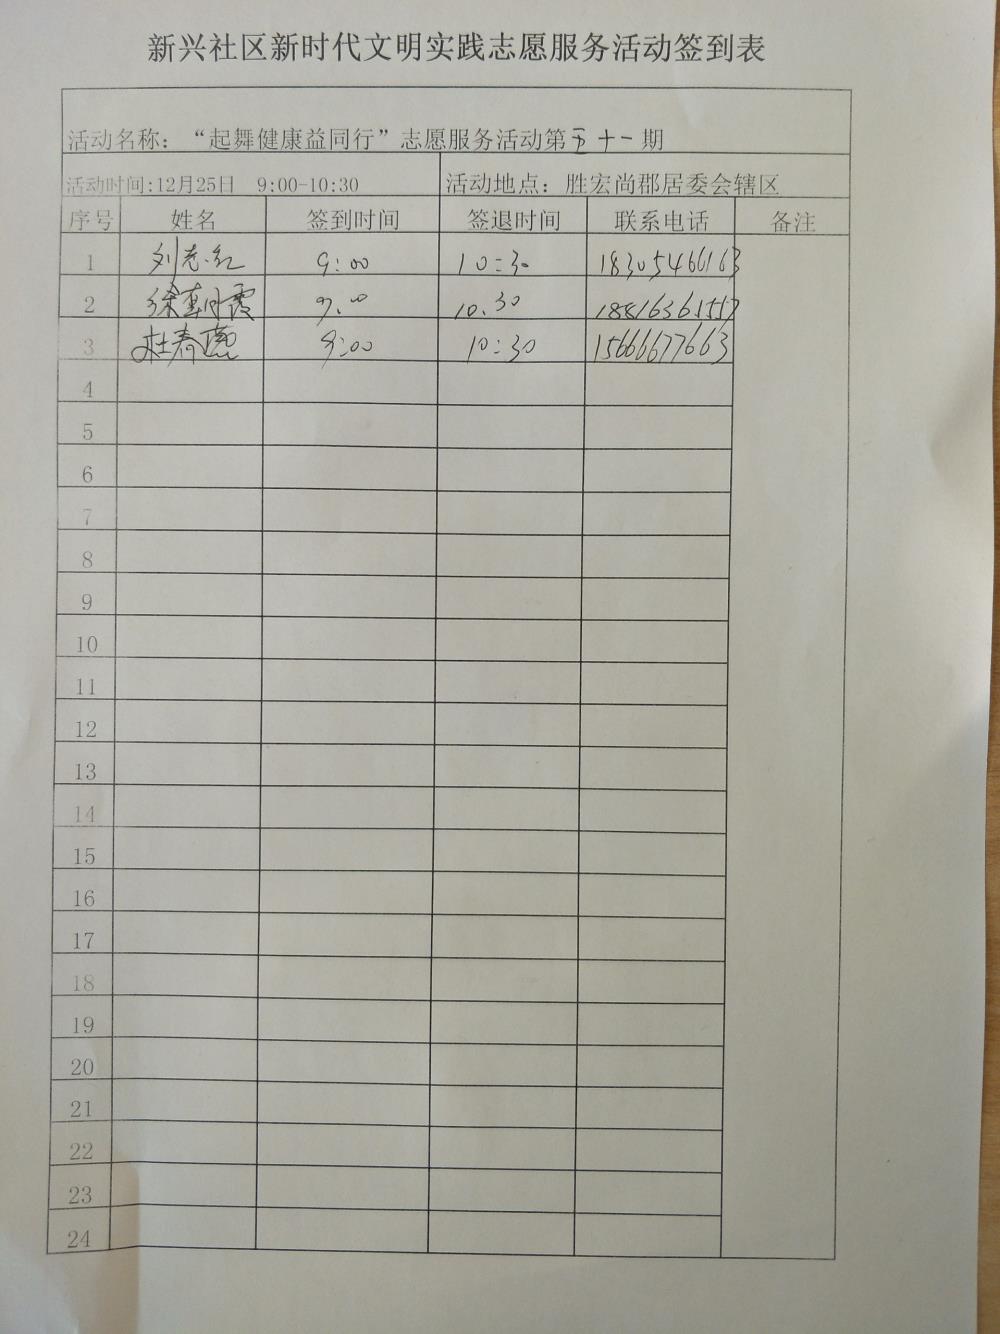 新兴社区新时代文明实践志愿服务活动签到表
活动名称：“起舞健康益同行”志愿服务活动第五十一期
活动时间:12月25日 9:00-10:30 活动地点：胜宏尚郡居委会辖区
序号 姓名 签到时间 签退时间 联系电话 备注
1 刘志红 9:00 10:30 18305466163
2 徐朝霞 9:00 10.30
3 杜春 9:00 10:30 15666677663
4
5
6
7
8
9
10
11
12
13
14
15
16
17
18
19
20
21
22
23
24